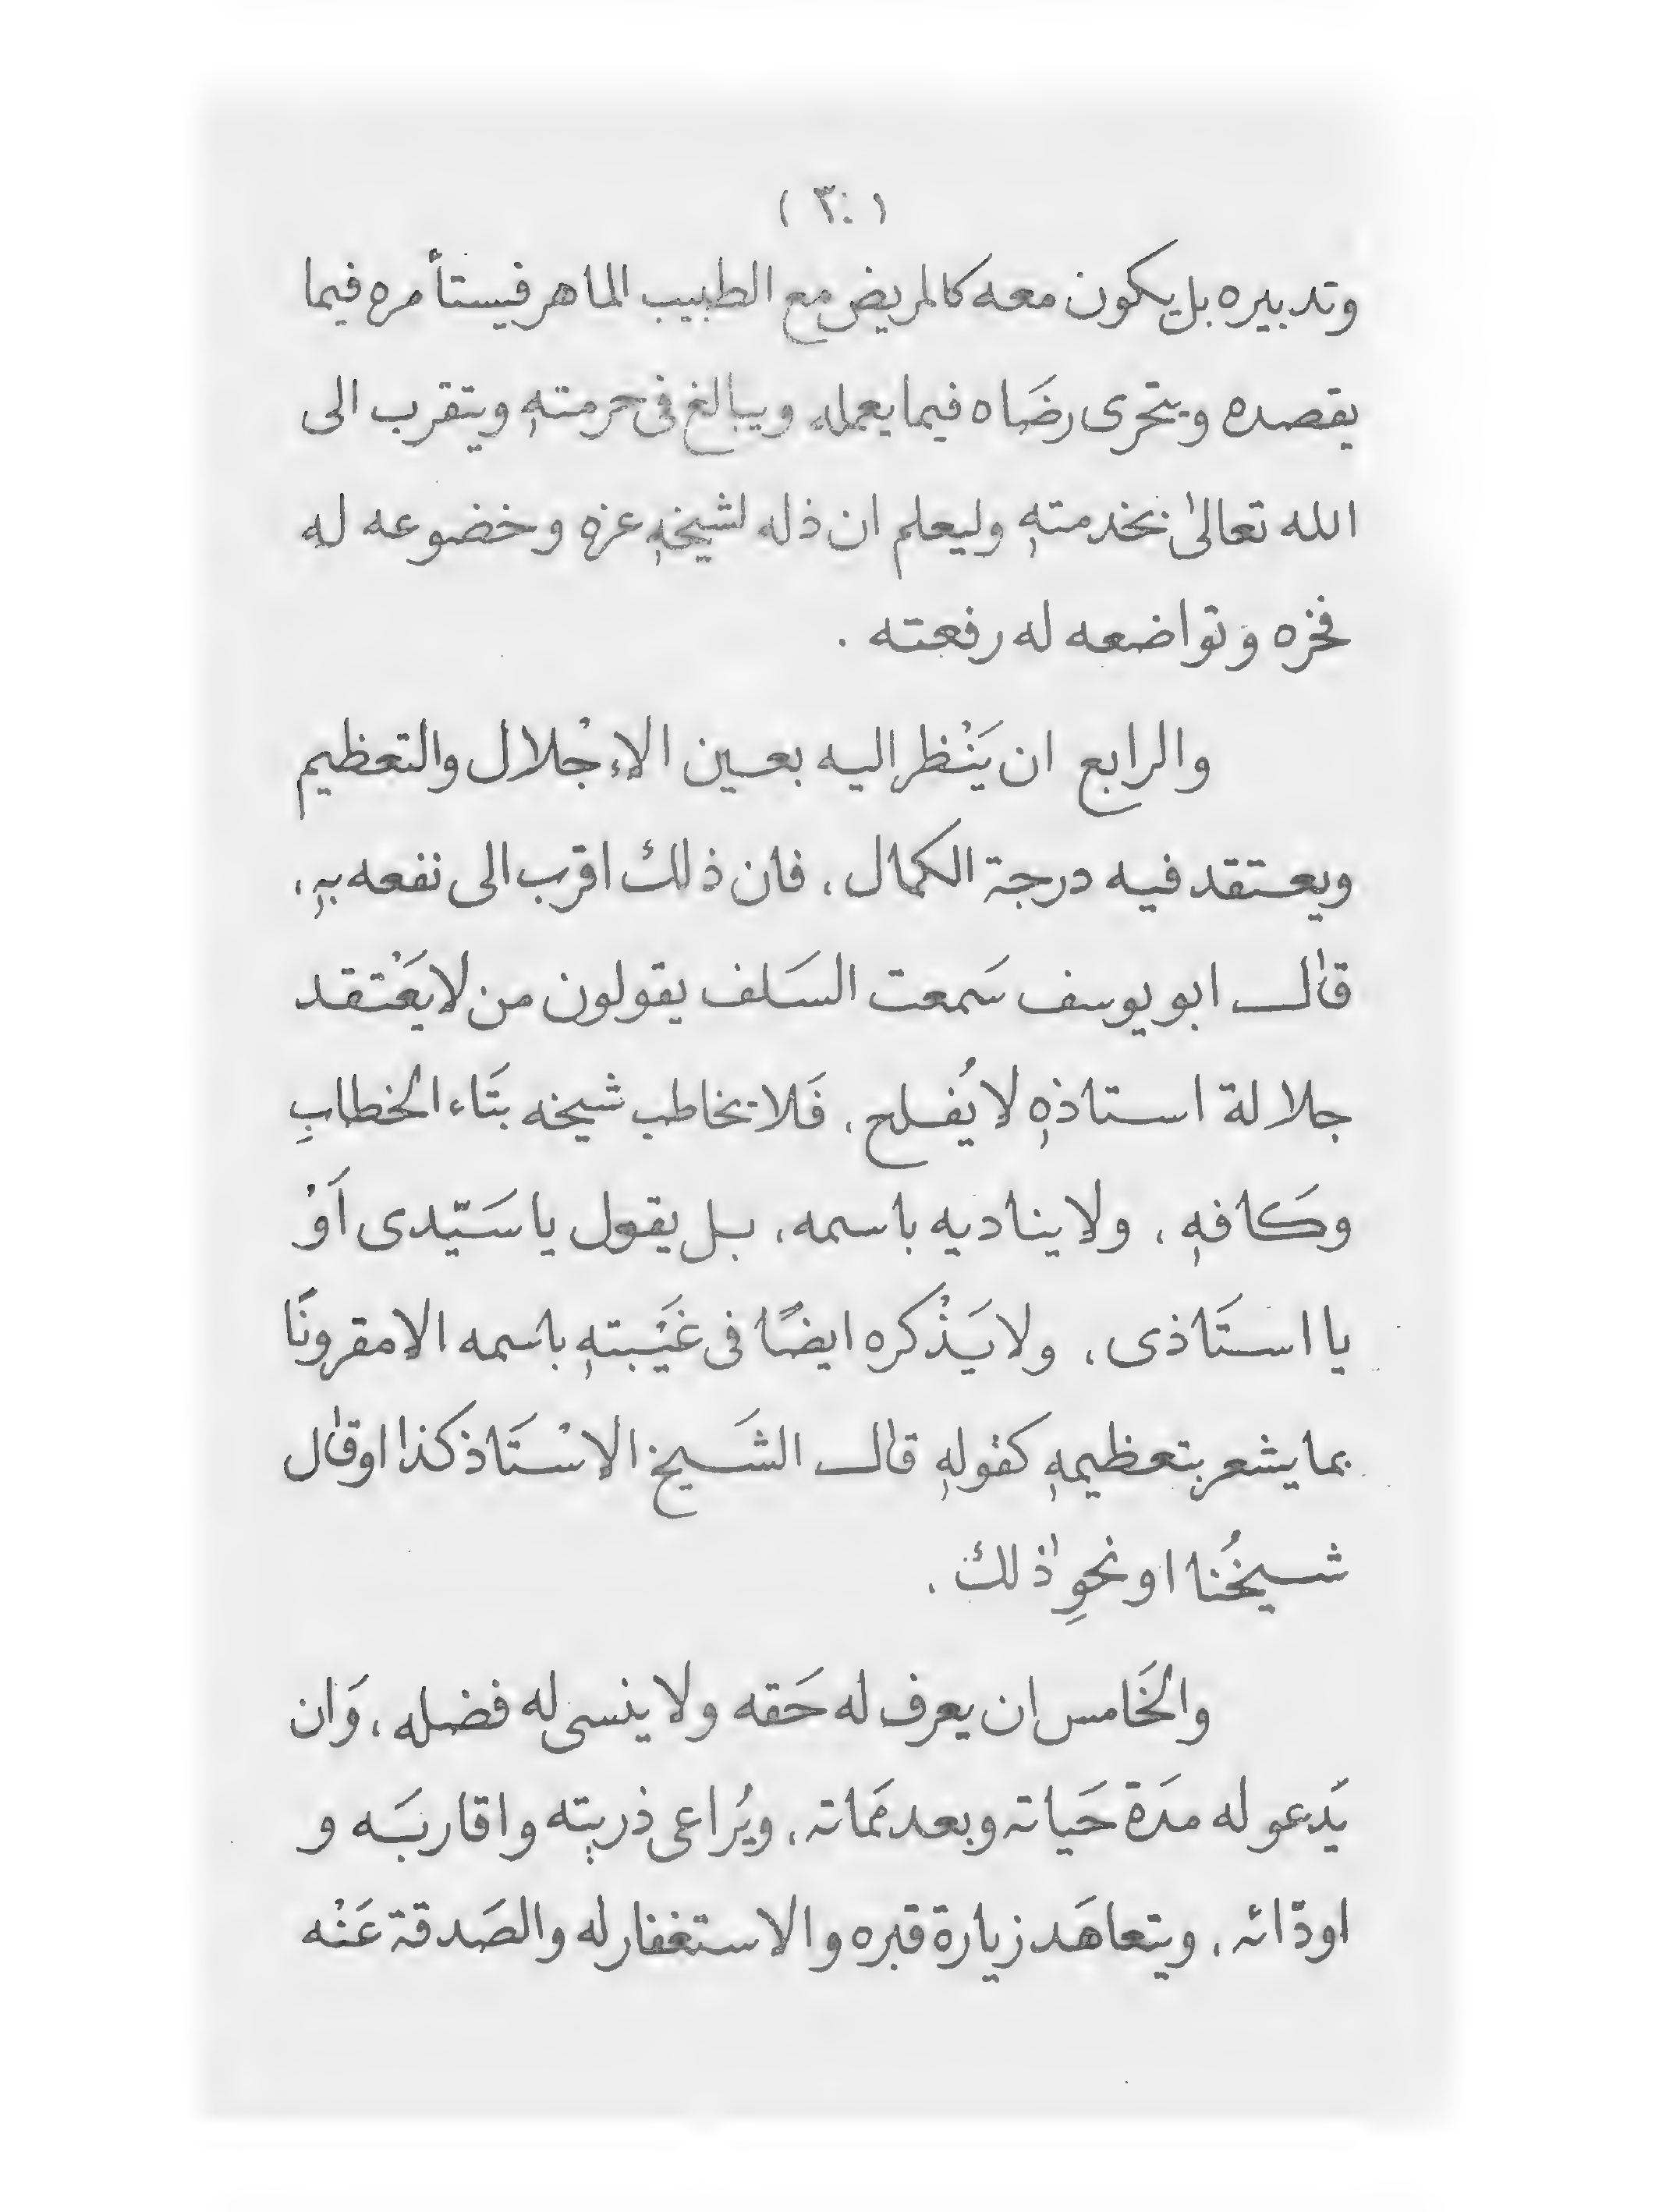 ( ٣٠ )
وتدبيره بل يكون معه كالمريض مع الطبيب الماهر فيستأمره فيما
يقصده ويتحرى رضَاه فيما يعمله ويبالغ فى حرمتهٖ ويتقرب الى
الله تعالىٰ بخدمتهٖ وليعلم ان ذله لشيخهٖ عزه وخضوعه له
فخره وتواضعه له رفعته .
والرابع ان يَنْظر اليه بعين الإجْلال والتعظيم
ويعتقد فيه درجة الكمال، فان ذلك اقرب الى نفعه بهٖ،
قال ابو يوسف سَمعت السَلف يقولون من لا يَعْتقد
جلالة استاذهٖ لا يُفلح، فَلا يخاطب شيخه بتَاء الخطابِ
وكَافهٖ، ولا يناديه باسمه، بل يقول يا سَيّدى اَوْ
يا استَاذى، ولا يَذْكره ايضًا فى غَيْبتهٖ باسمه الا مقرونًا
بما يشعر بتعظيمهٖ كقولهٖ قال الشَيخ الاسْتَاذ كذا او قال
شيخُنا او نحوِ ذٰلك .
والخَامس ان يعرف له حَقه ولا ينسى له فضله، وَان
يَدعو له مدَة حَياته وبعد ممَاته، ويُراعى ذريته واقاربَه و
اودّائه، ويتعاهَد زيارة قبره والاستغفار له والصَدقة عَنْه